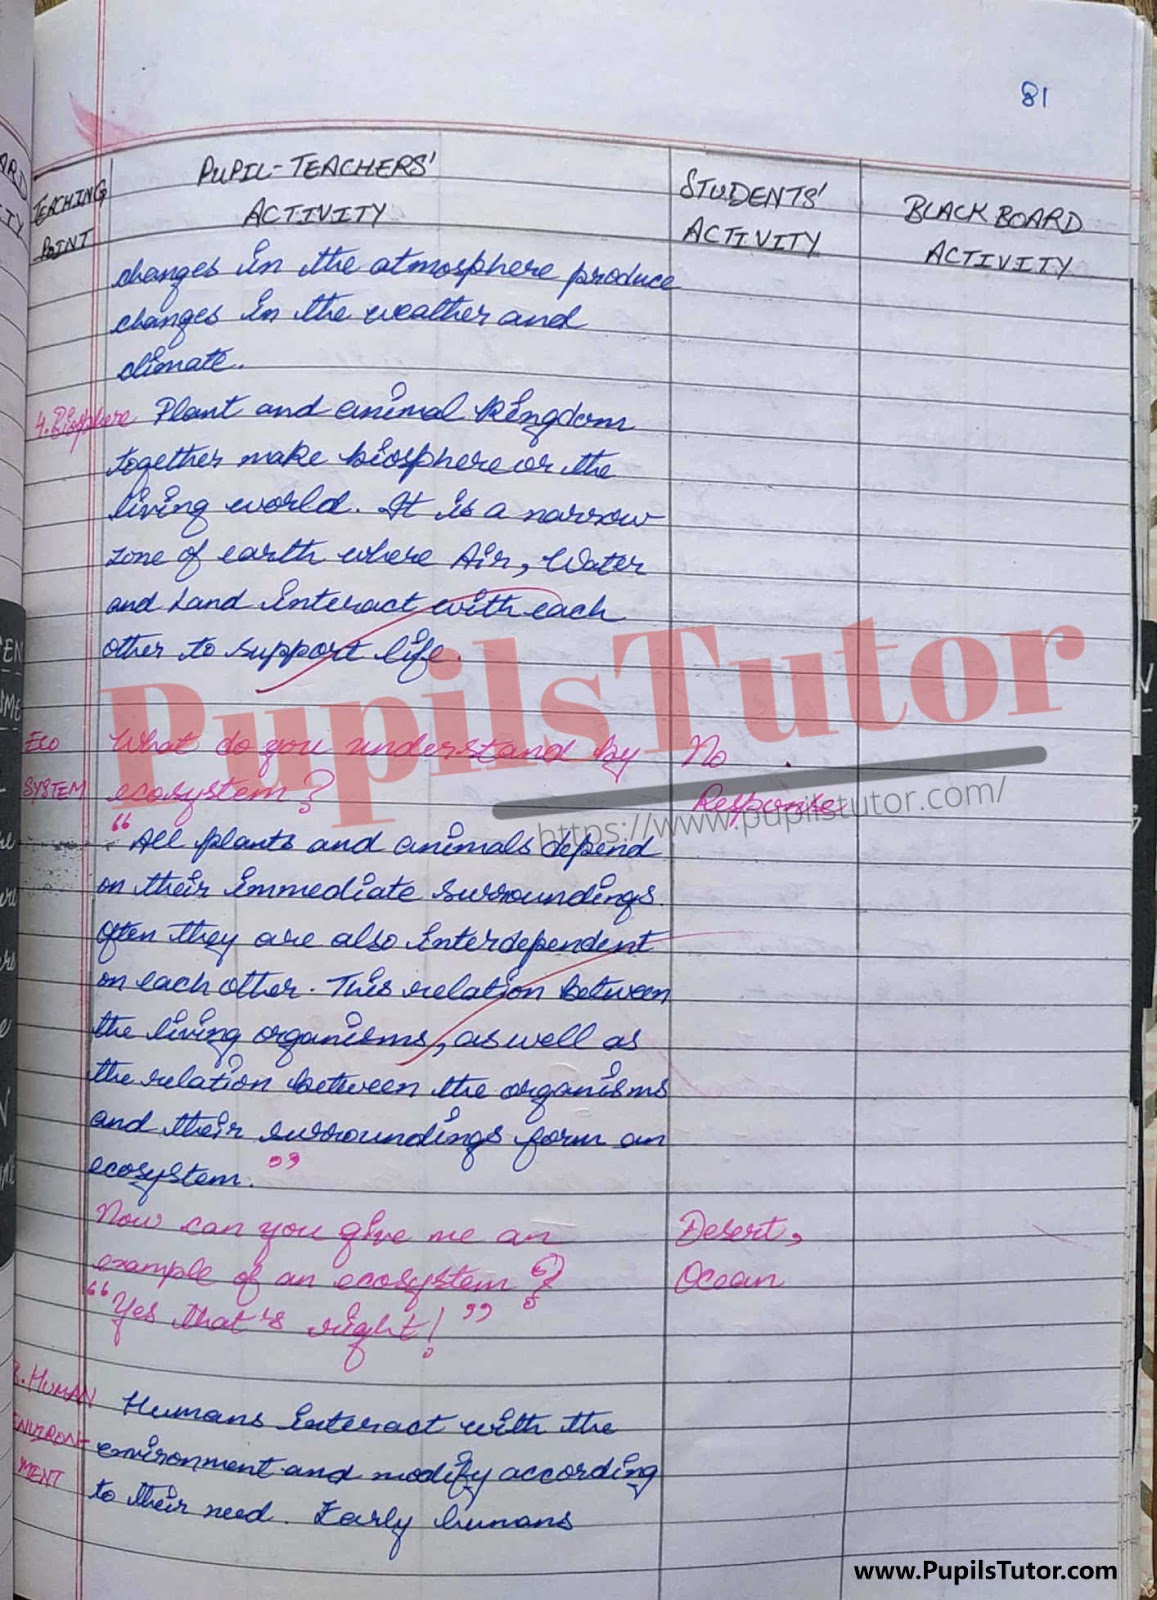 81
TEACHING
POINT
PUPIL-TEACHERS'
ACTIVITY
STUDENTS'
ACTIVITY
BLACKBOARD
ACTIVITY
changes in the atmosphere produce
changes in the weather and
climate.
4. Biosphere Plant and animal kingdom
together make biosphere or the
living world. It is a narrow
zone of earth where Air, Water
and Land interact with each
other to support life.
PupilsTutor
https://www.pupilstutor.com/
ECO
SYSTEM
What do you understand by
ecosystem?
No
Response
"All plants and animals depend
on their immediate surroundings.
Often they are also interdependent
on each other. This relation between
the living organisms, as well as
the relation between the organisms
and their surroundings form an
ecosystem."
Now can you give me an
example of an ecosystem?
Desert,
Ocean
"Yes that's right!"
HUMAN
ENVIRON
MENT
Humans interact with the
environment and modify according
to their need. Early humans
www.PupilsTutor.com